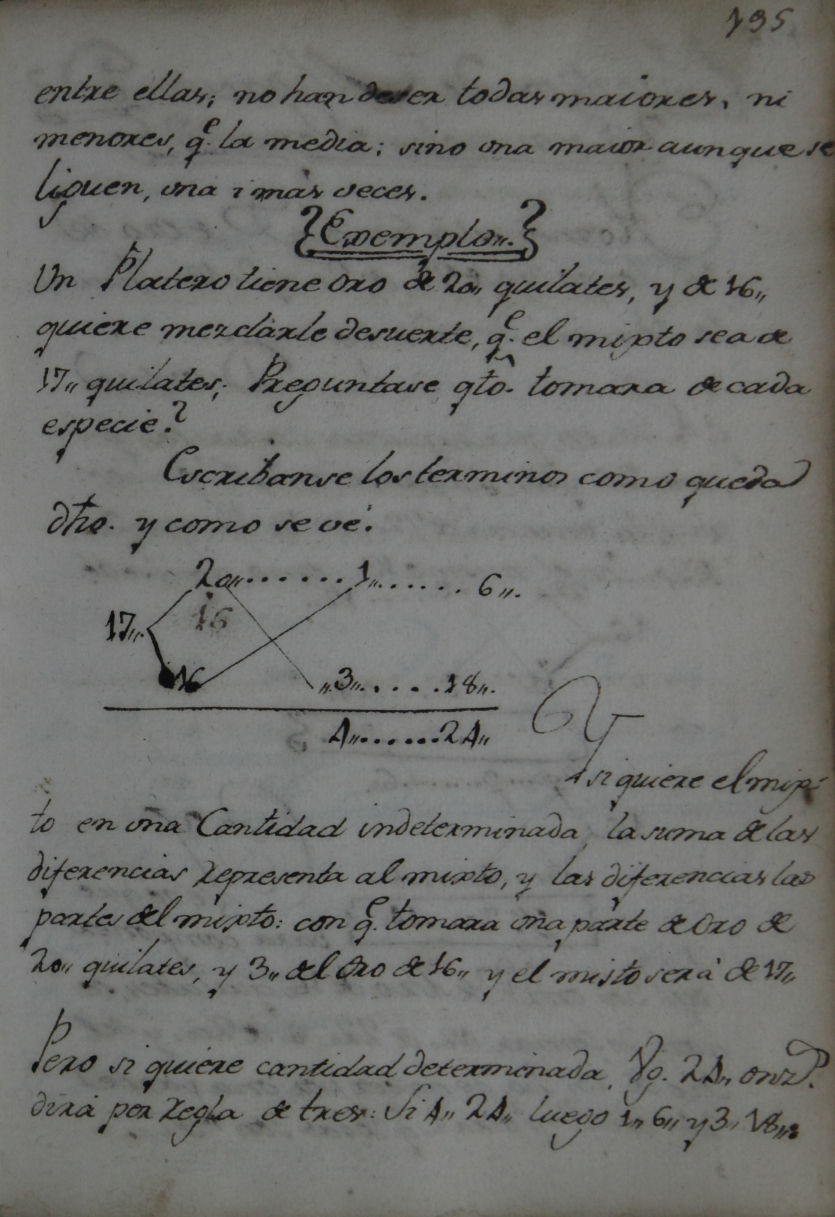 195
entre ellas; no han de ser todas maiores, ni
menores, q.e la media; sino una maior aunque se
liguen, una i más veces.
Exemplo„.
Un Platero tiene oro de 20„ quilates, y de 16„
quiere mezclárle desuerte, q.e el mixto sea de
17„ quilates; Preguntase qto. tomara de cada
especie?
Escribanse los terminos como queda
dho. y como se vé.
20„......1„......6„.
17„. 16
16 „3„.....18„.
4„......24„
Y
si quiere el mix-
to en una Cantidad indeterminada, la suma de las
diferencias representa al mixto, y las diferencias las
partes del mixto: con q.e tomara una parte de Oro de
20„ quilates, y 3„ del Oro de 16„ y el misto será de 17„
Pero si quiere cantidad determinada, Vg. 24„ onz.s
dirá por regla de tres: Si 4„ 24„ luego 1„ 6„ y 3„ 18„: